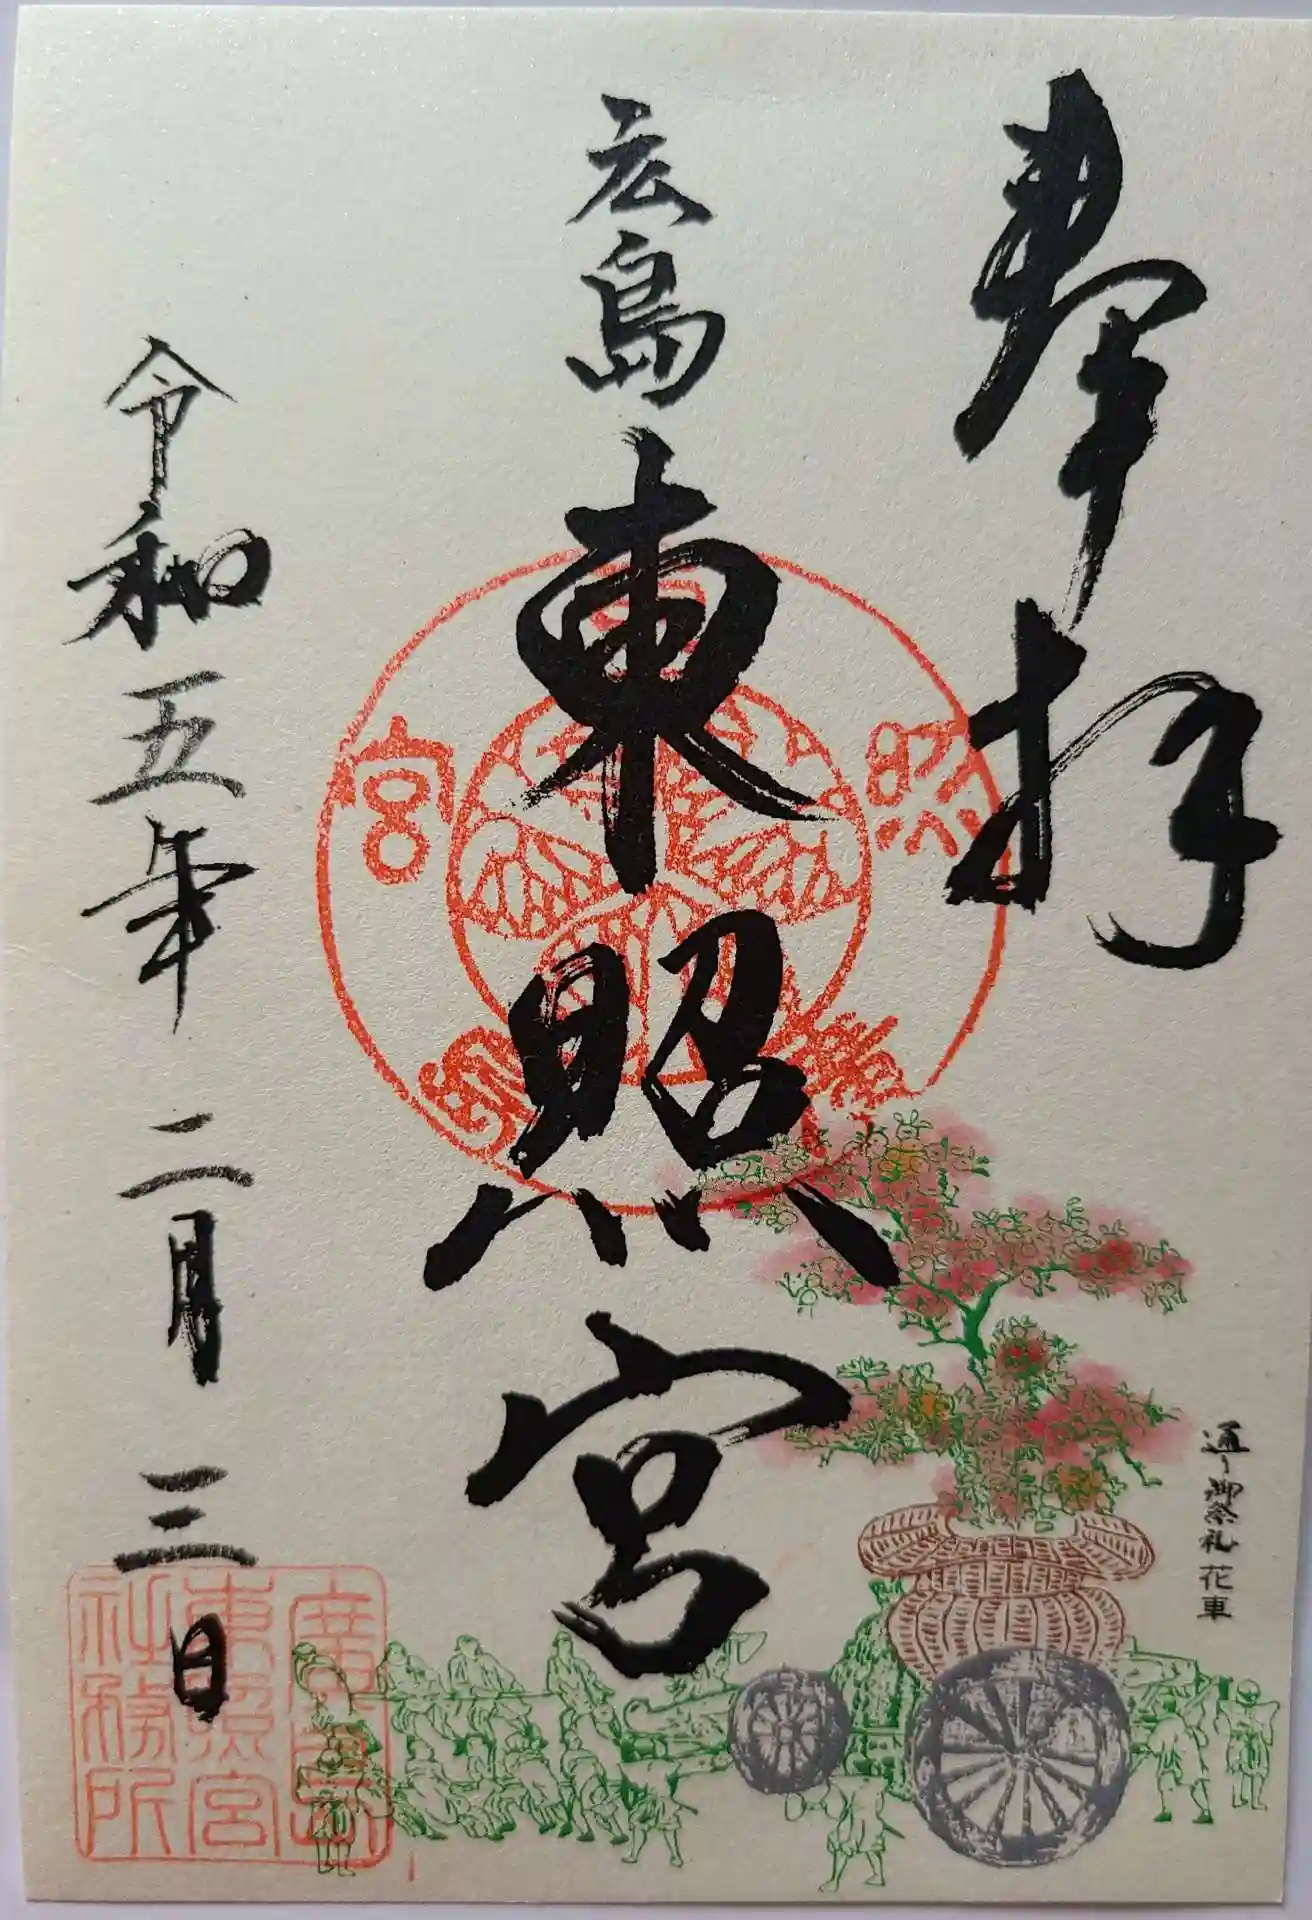 奉拝
広島東照宮
令和五年二月三日
通り御祭礼 花車
廣島
東照宮
社務所